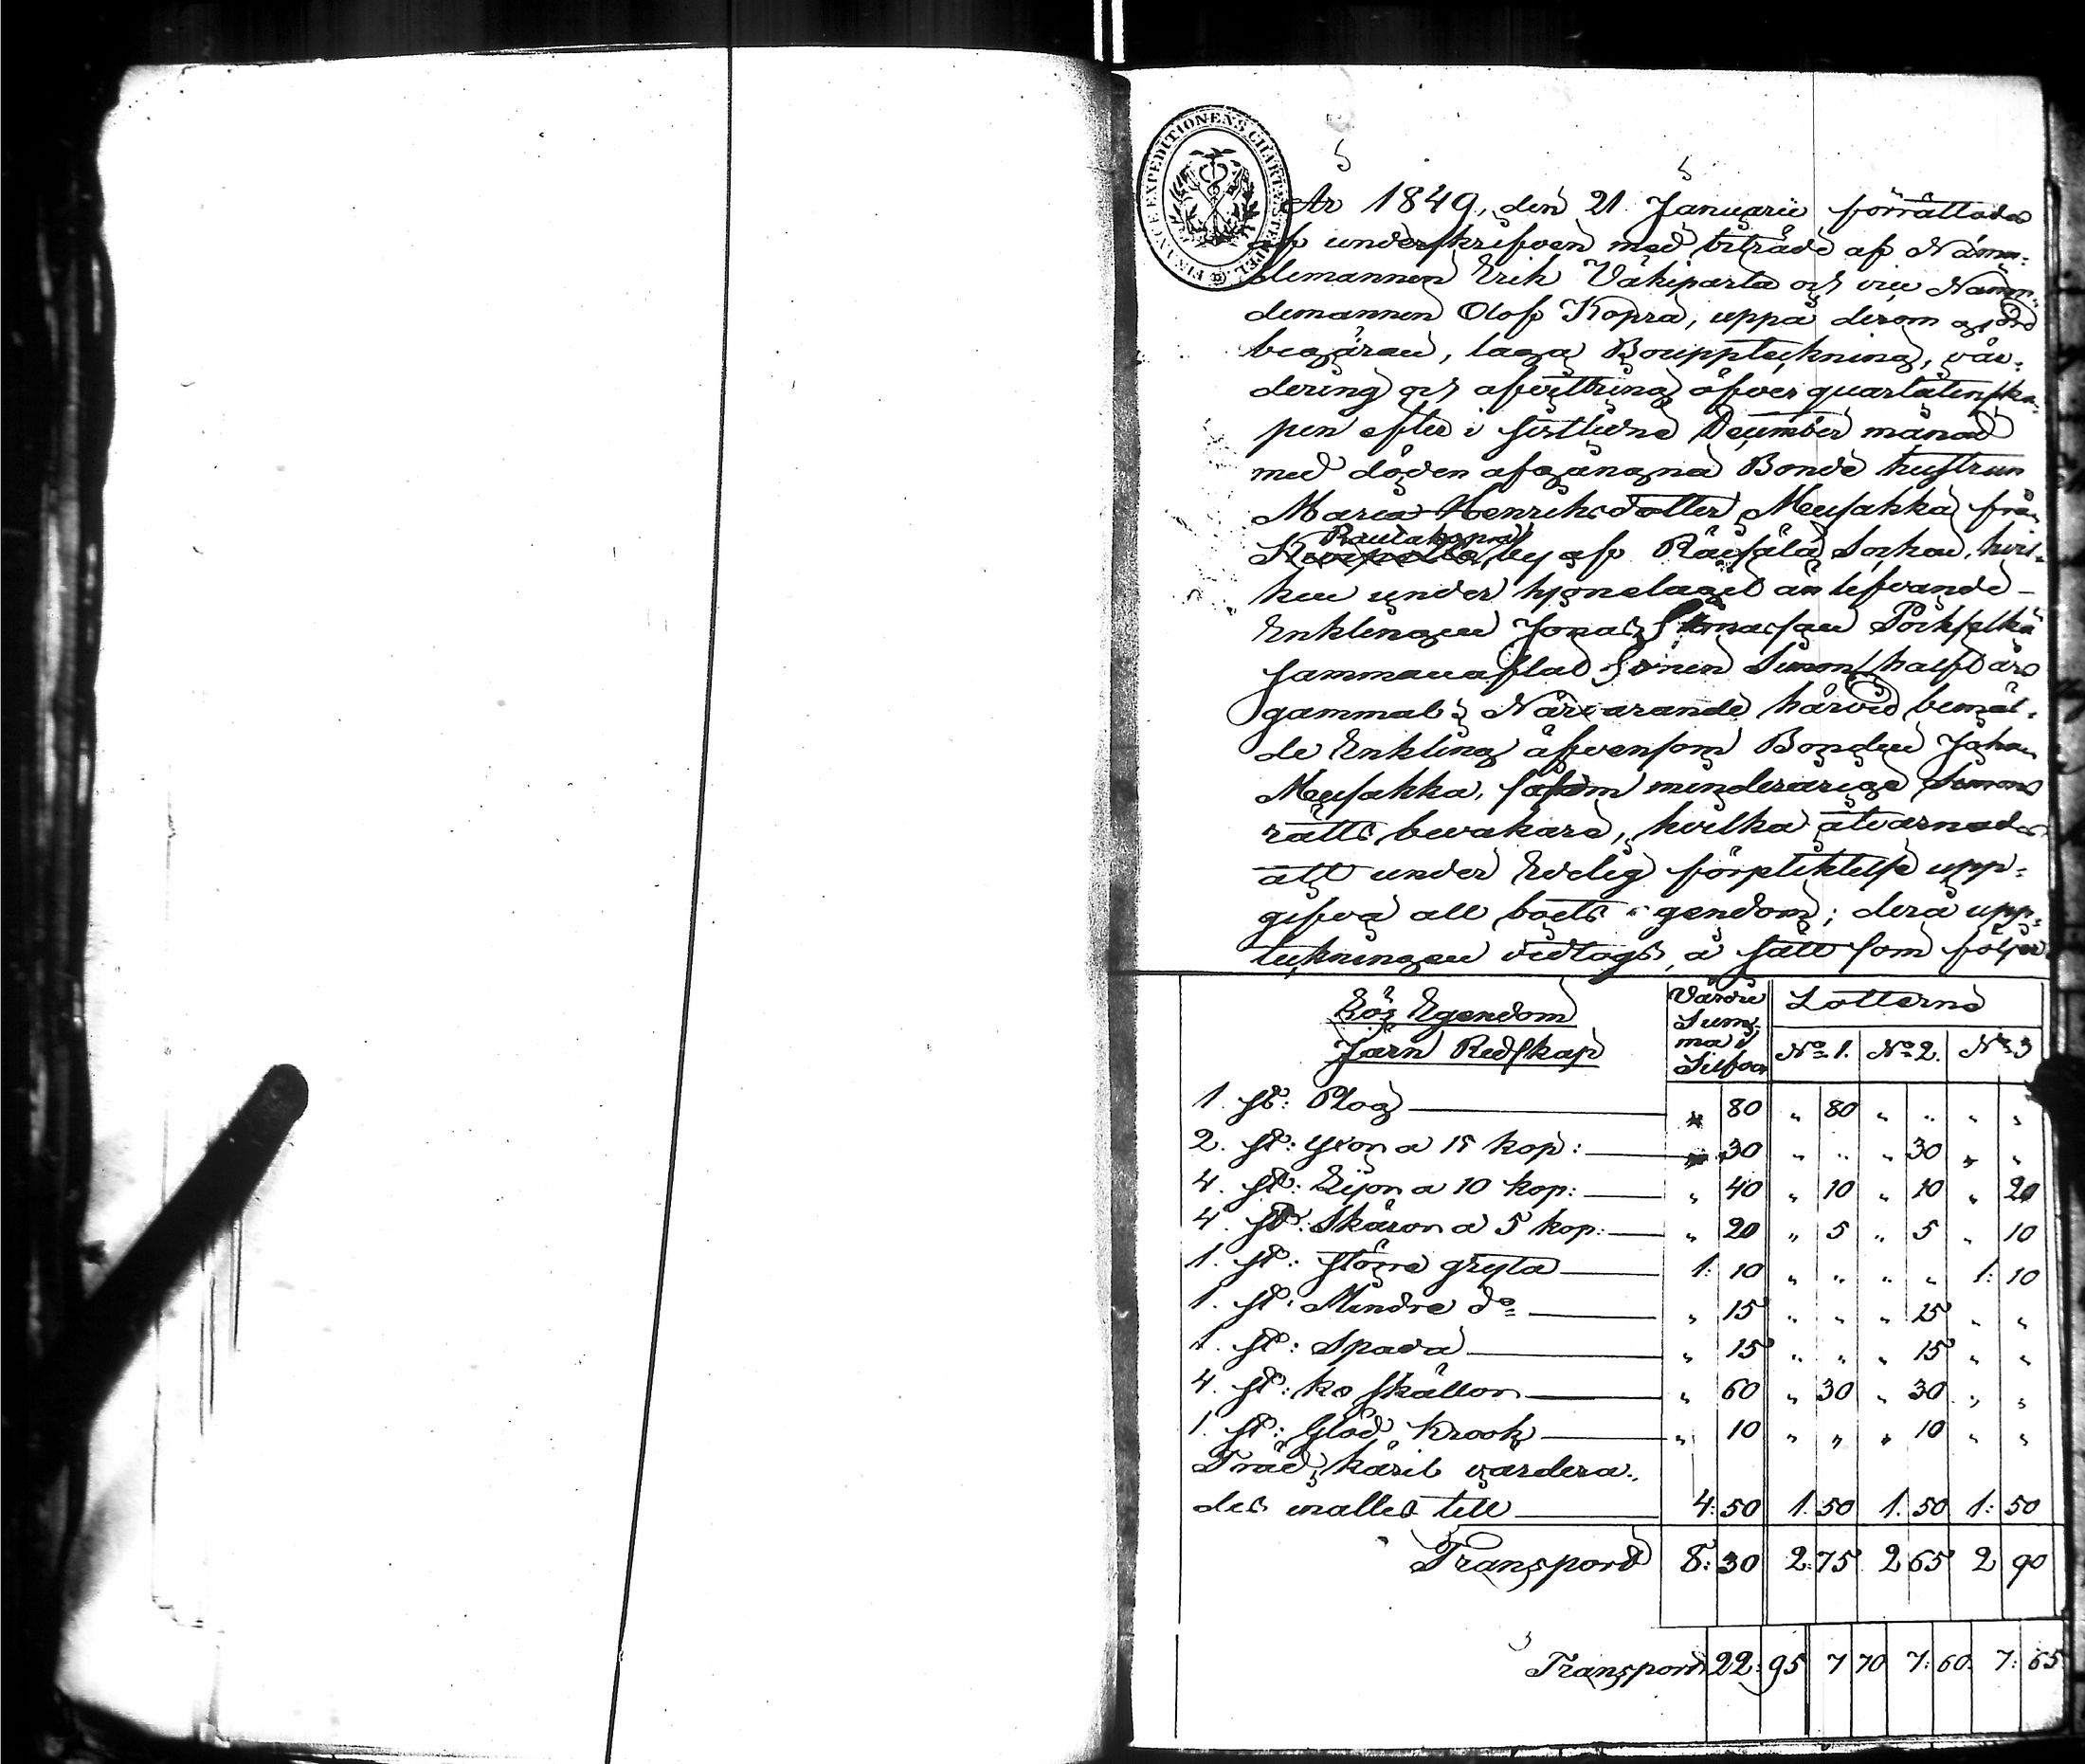 FINANCE EXPEDITIONENS CHARTÆ STEMPEL.
År 1849, den 21 Januarii förrättades
af underskrifven med biträde af Nämn-
demannen Erik Väkiparta och vice Nämn-
demannen Olof Kopra, uppå derom gjord
begäran, laga Bouppteckning, vär-
dering och afvittring öfver quarlåtenska-
pen efter i sistledne December månad
med döden afgångna Bonde hustrun
Maria Henriksdotter Meusakka från
Rautakopra
by af Räisälä Socken, hvil-
ken under hjonelaget än lefvande
Enklingen Jonas Jonasson
sammanaflat Sonen Simon, halft års
gammal; Närvarande härvid bemäl-
de Enkling äfvensom Bonden Johan
Meusakka, såsom minderårige Simons
rätts bevakare, hvilka åtvarnades
att under Edelig förpliktelse upp-
gifva all boets egendom; derå upp-
teckningen vidtogs, å sätt som följer
Lös Egendom
Järn Redskap
Värdie Summa i Silfver
Lotterne
No 1. No 2. No 3
1. st: Plog " 80 " 80 " " " "
2. st: Yxor a 15 kop: " 30 " " " 30 " "
4. st: Lijor a 10 kop: " 40 " 10 " 10 " 20
4. st: Skäror a 5 kop: " 20 " 5 " 5 " 10
1. st: större gryta 1: 10 " " " " 1: 10
1. st: Mindre do " 15 " " " 15 " "
1. st: Spada " 15 " " " 15 " "
4. st: ko skällor " 60 " 30 " 30 " "
1. st: Glöd Krook " 10 " " " 10 " "
Träd käril värdera-
des inalles till 4: 50 1. 50 1. 50 1: 50
Transport 8: 30 2: 75 2 65 2 90
Transport 22: 95 7 70 7: 60 7: 65